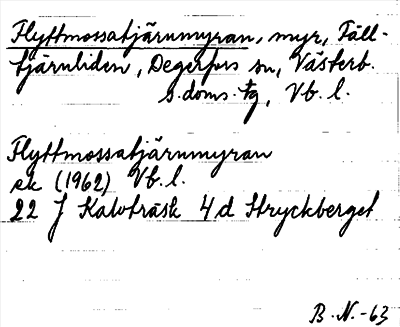 Flyttmossatjärnmyran, myr, Fäll-
tjärnliden, Degerfors sn, Västerb.
s. doms. tg, Vb. l.
Flyttmossatjärnmyran
ek (1962) Vb. l.
22 J Kalvträsk 4 d Stryckberget
B. N. -63